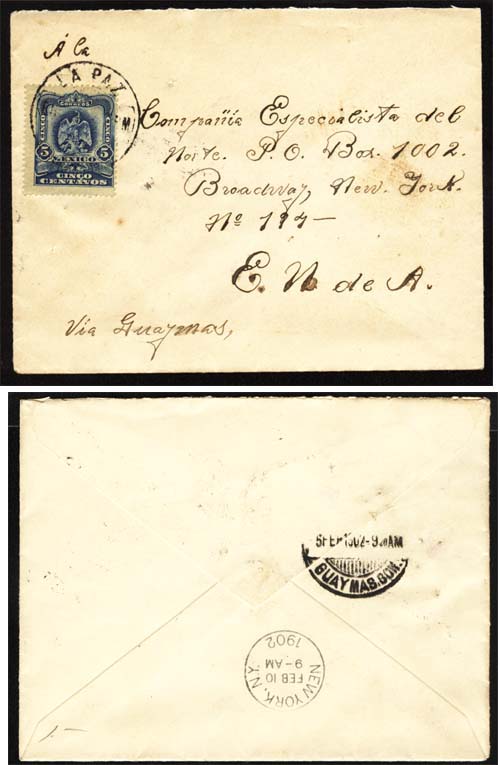 Á la
LA PAZ
M
CORREOS
CINCO CINCO
5 MEXICO 5
CINCO
CENTAVOS
Compañia Especialista del
Norte. P. O. Box. 1002.
Broadway, New. York.
Nº 194—
E. U. de A.
Via Guaymas,
5FEB1902-9 AM
GUAYMAS.SON.
NEW YORK, N.Y.
FEB 10
9-AM
1902